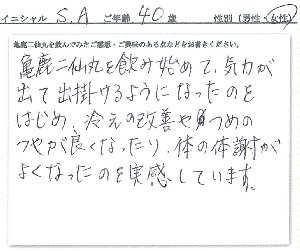 イニシャル S.A ご年齢 40 歳 性別(男性・女性)
亀鹿二仙丸を飲んでみたご感想・ご興味のある点などをお書きください。
亀鹿二仙丸を飲み始めて、気力が
出て出掛けるようになったのを
はじめ、冷えの改善やつめの
つやが良くなったり、体の体謝が
よくなったのを実感しています。